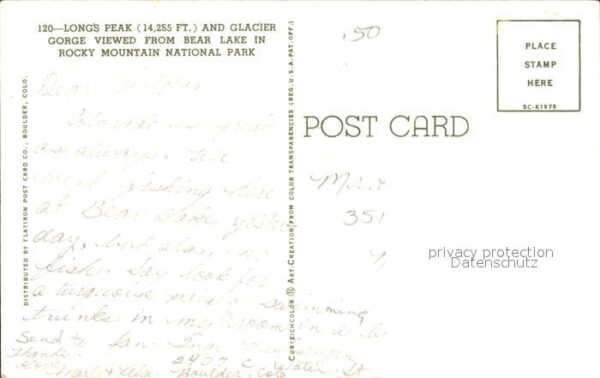 120—LONG'S PEAK (14,255 FT.) AND GLACIER
GORGE VIEWED FROM BEAR LAKE IN
ROCKY MOUNTAIN NATIONAL PARK
.50
PLACE
STAMP
HERE
5C-K1978
POST CARD
DISTRIBUTED BY FLATIRON POST CARD CO., BOULDER, COLO.
CURTEICHCOLOR ® ART-CREATION FROM COLOR TRANSPARENCIES (REG. U.S.A. PAT. OFF.)
Dear
Colorado is great
as always. We
went fishing here
at Bear Lake yester
day, but alas, no
fish. Say look for
a turquoise pair of swimming
trunks in my room in a
Send to
Thanks
Love
2457 C Water St
Boulder, Colo
351
privacy protection
Datenschutz